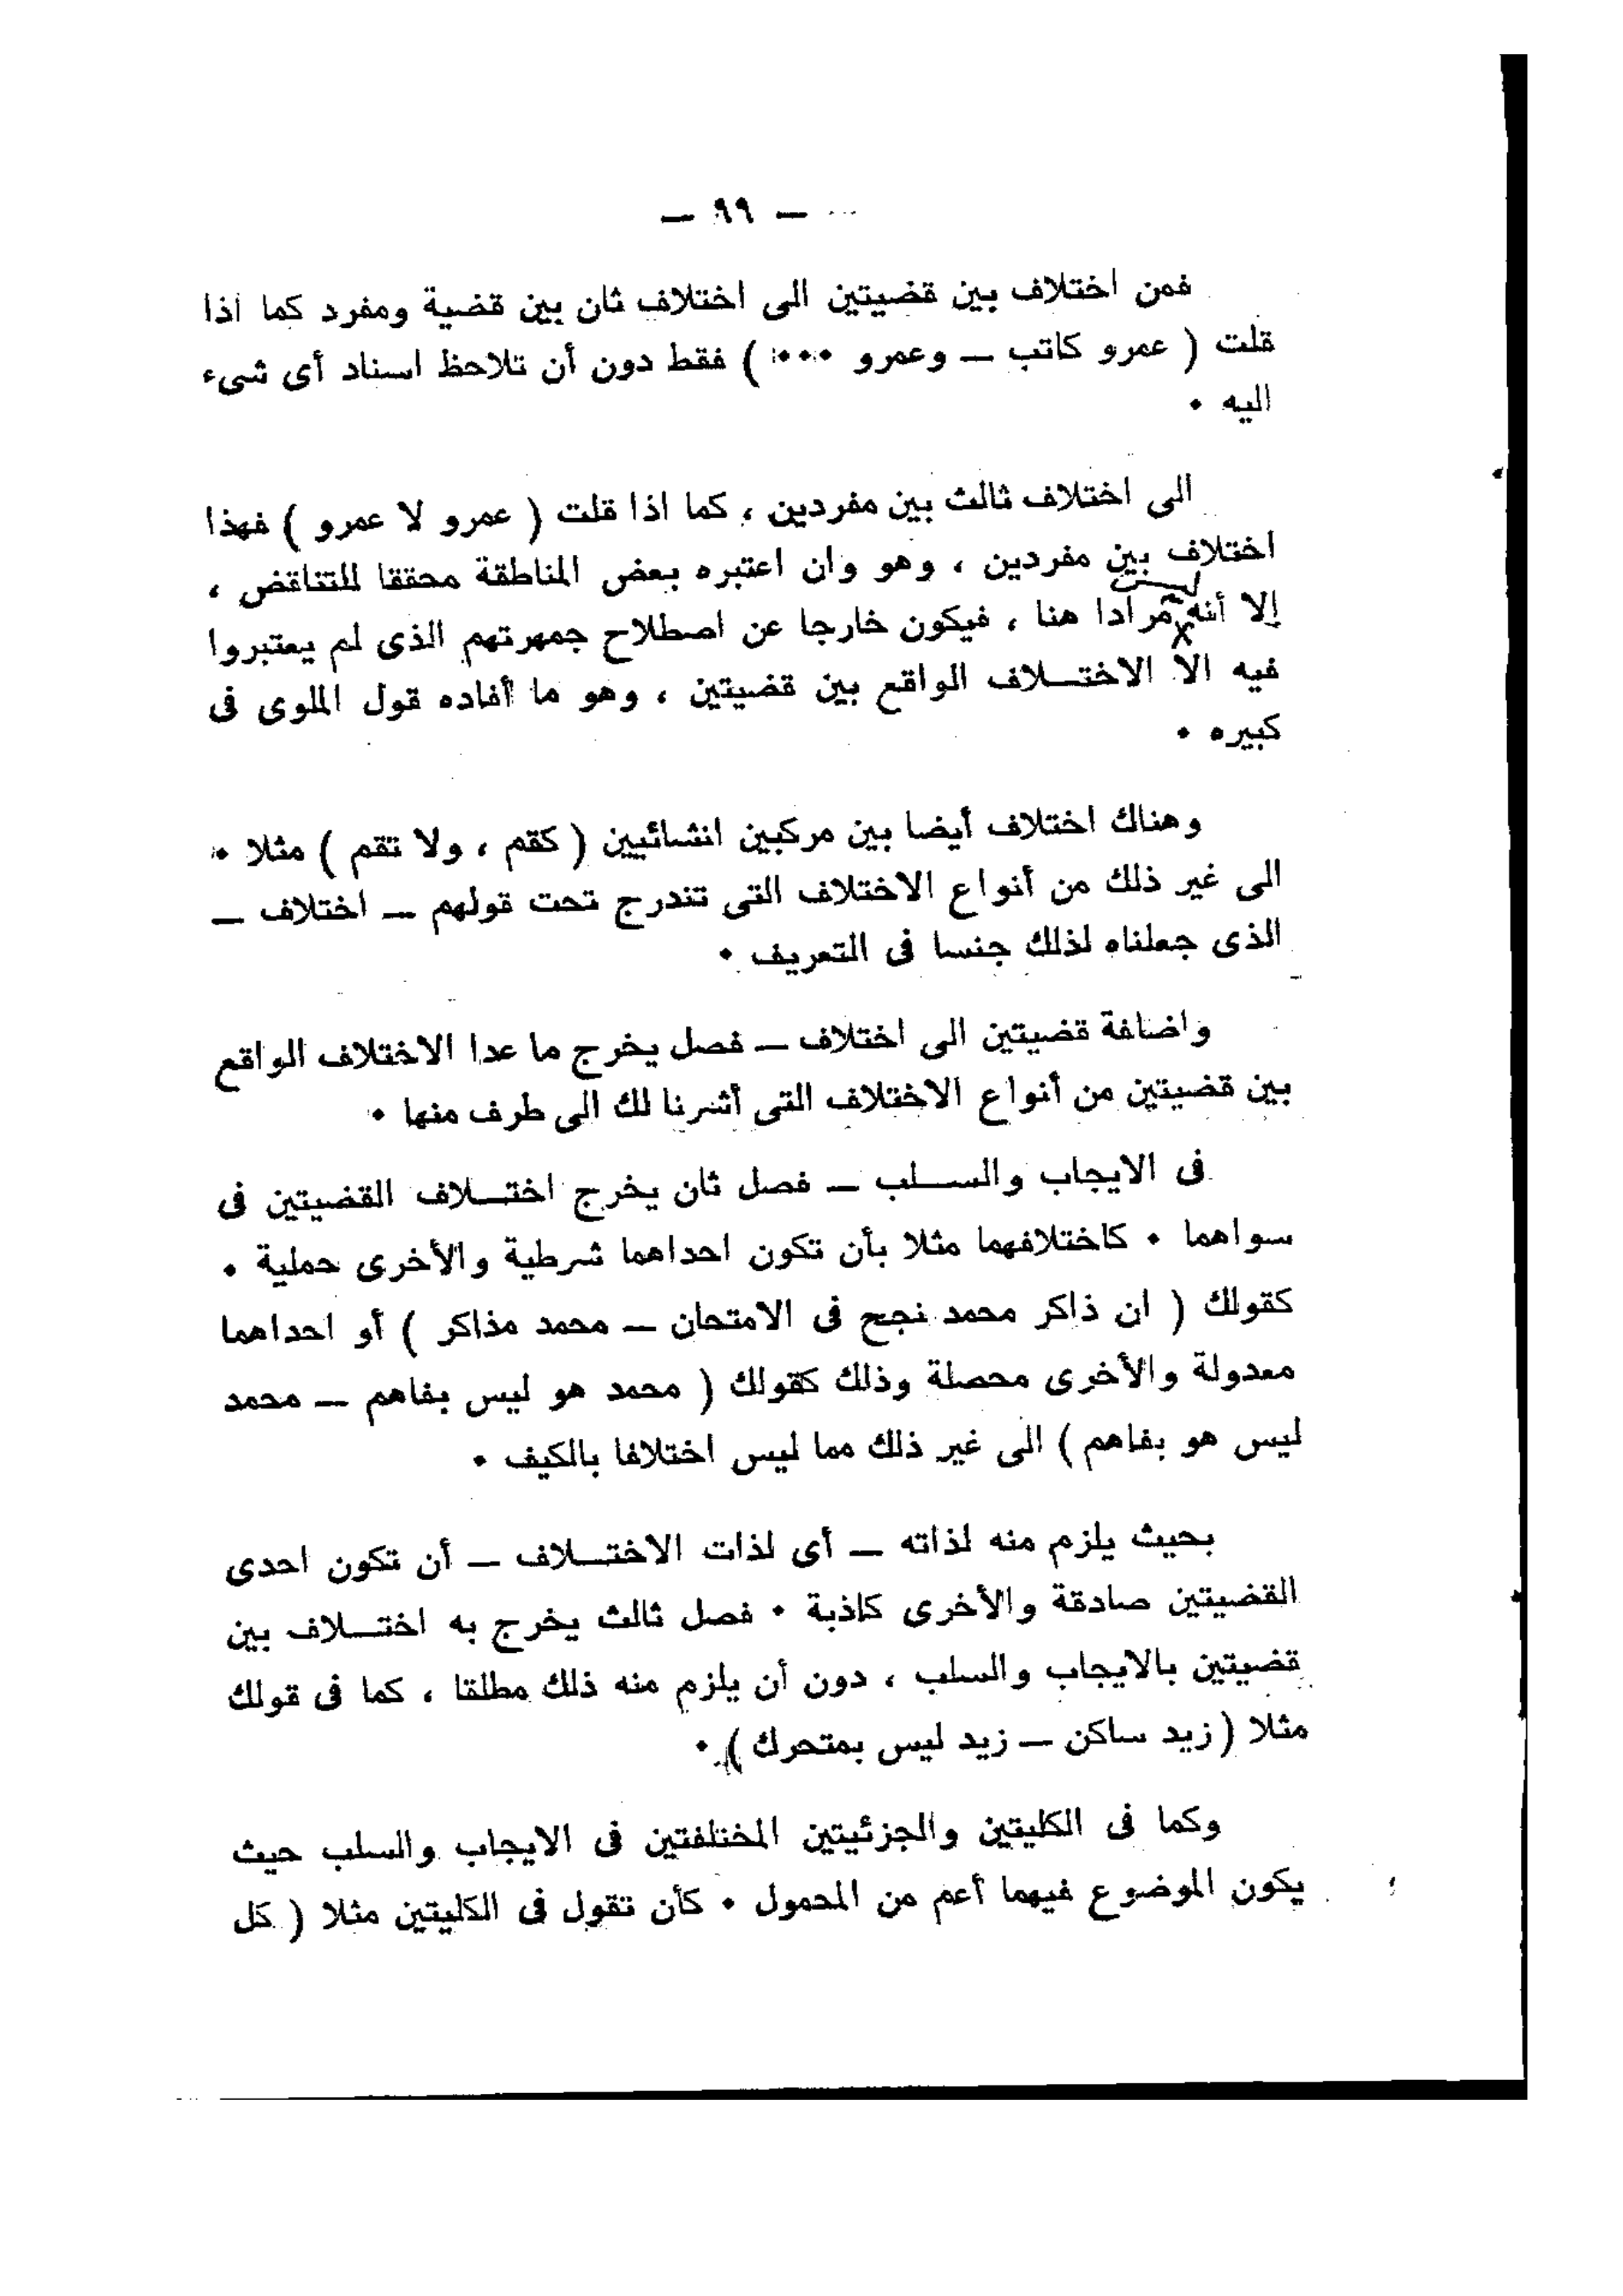 — ٩٩ —
فمن اختلاف بين قضيتين الى اختلاف ثان بين قضية ومفرد كما اذا
قلت ( عمرو كاتب — وعمرو ٠٠٠٠ ) فقط دون أن تلاحظ اسناد أى شىء
اليه ٠
الى اختلاف ثالث بين مفردين ، كما اذا قلت ( عمرو لا عمرو ) فهذا
اختلاف بين مفردين ، وهو وان اعتبره بعض المناطقة محققا للتناقض ،
ليس
إلا أنه مرادا هنا ، فيكون خارجا عن اصطلاح جمهرتهم الذى لم يعتبروا
فيه الا الاختـلاف الواقع بين قضيتين ، وهو ما أفاده قول الملوى فى
كبيره ٠
وهناك اختلاف أيضا بين مركبين انشائيين ( كقم ، ولا تقم ) مثلا ٠
الى غير ذلك من أنواع الاختلاف التى تندرج تحت قولهم — اختلاف —
الذى جعلناه لذلك جنسا فى التعريف ٠
واضافة قضيتين الى اختلاف — فصل يخرج ما عدا الاختلاف الواقع
بين قضيتين من أنواع الاختلاف التى أشرنا لك الى طرف منها ٠
فى الايجاب والسـلب — فصل ثان يخرج اختـلاف القضيتين فى
سواهما ٠ كاختلافهما مثلا بأن تكون احداهما شرطية والأخرى حملية ٠
كقولك ( ان ذاكر محمد نجح فى الامتحان — محمد مذاكر ) أو احداهما
معدولة والأخرى محصلة وذلك كقولك ( محمد هو ليس بفاهم — محمد
ليس هو بفاهم ) الى غير ذلك مما ليس اختلافا بالكيف ٠
بحيث يلزم منه لذاته — أى لذات الاختـلاف — أن تكون احدى
القضيتين صادقة والأخرى كاذبة ٠ فصل ثالث يخرج به اختـلاف بين
قضيتين بالايجاب والسلب ، دون أن يلزم منه ذلك مطلقا ، كما فى قولك
مثلا ( زيد ساكن — زيد ليس بمتحرك ) ٠
وكما فى الكليتين والجزئيتين المختلفتين فى الايجاب والسلب حيث
يكون الموضوع فيهما أعم من المحمول ٠ كأن تقول فى الكليتين مثلا ( كل